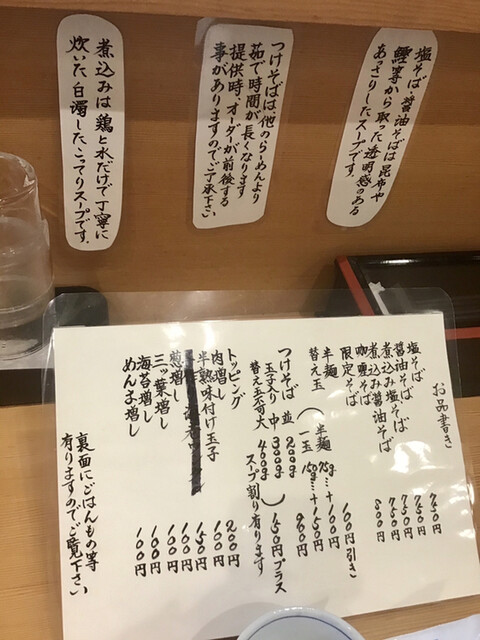 塩そば・醤油そばは昆布や
鰹等から取った透明感のある
あっさりしたスープです。
つけそばは他のらーめんより
茹で時間が長くなります
提供時、オーダーが前後する
事がありますのでご了承下さい
煮込みは鶏と水だけで丁寧に
炊いた白濁したこってりスープです。
お品書き
塩そば 750円
醤油そば 750円
煮込み塩そば 750円
煮込み醤油そば 750円
咖喱そば 800円
限定そば
半麺 100円引き
替え玉 半麺 75g…+100円
一玉 150g…+150円
つけそば 並 200g 900円
玉子入り 中 300g
替え玉不可 大 400g 150円プラス
スープ割り有ります
トッピング
肉増し 200円
半熟味付け玉子 100円
葱増し 100円
三ッ葉増し 100円
海苔増し 100円
めんま増し 100円
裏面にごはんもの等
有りますのでご覧下さい